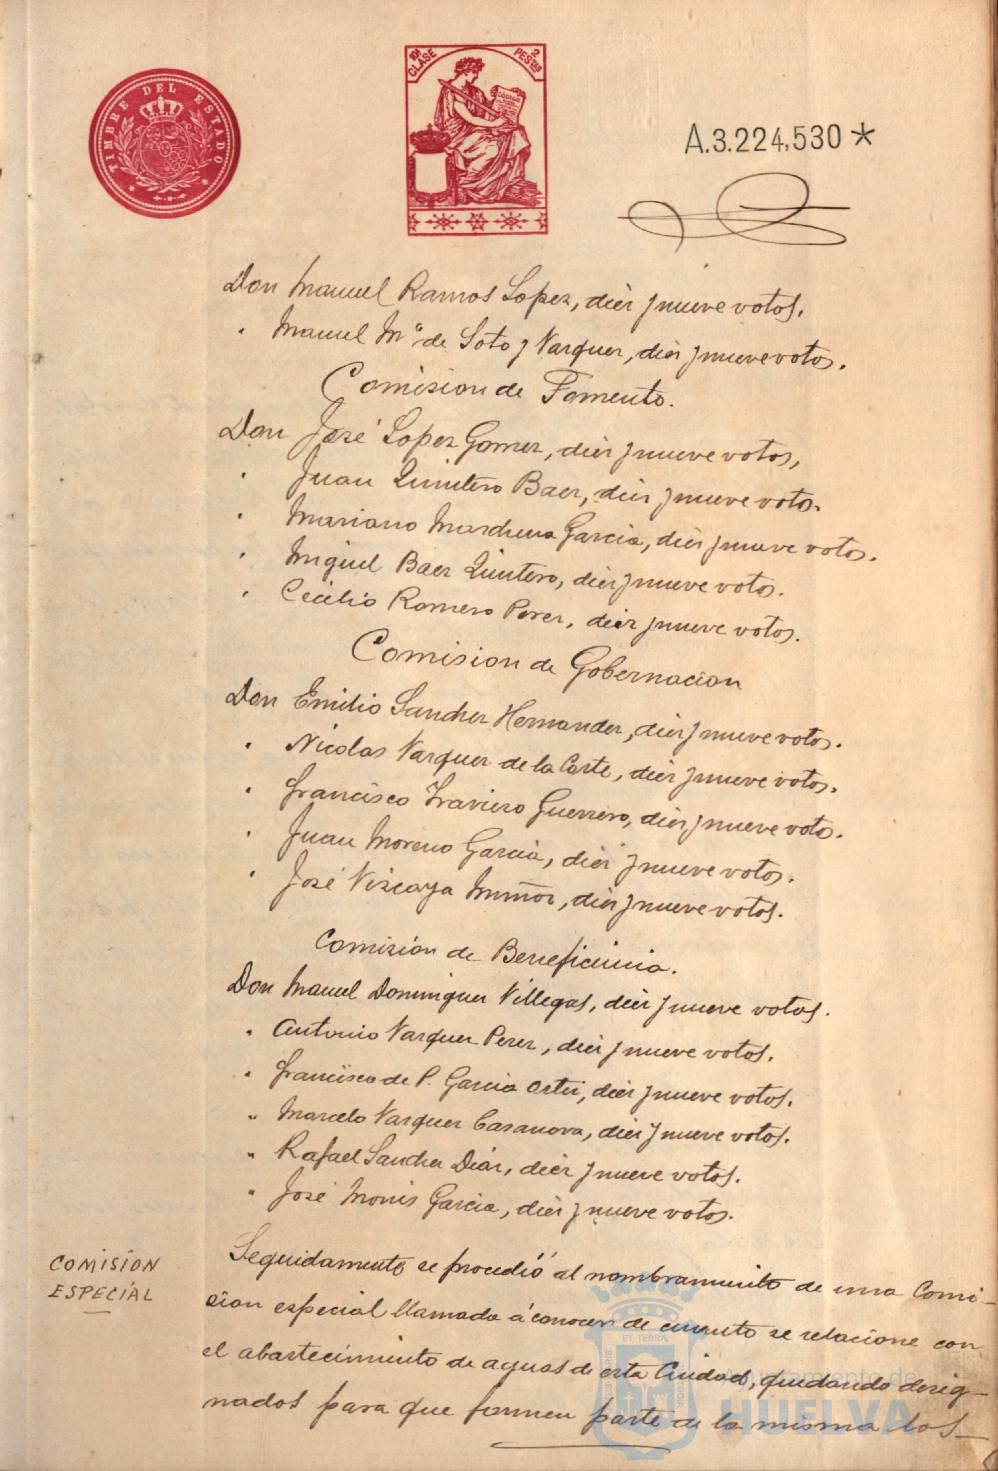 TIMBRE DEL ESTADO
10ª CLASE 2 PESTAS
A.3.224,530*
Don Manuel Ramos Lopez, diez y nueve votos.
" Manuel Mª de Soto y Vazquez, diez y nueve votos.
Comision de Fomento.
Don José Lopez Gomez, diez y nueve votos,
" Juan Quintero Baez, diez y nueve votos.
" Mariano Marchena Garcia, diez y nueve votos.
" Miguel Baez Quintero, diez y nueve votos.
" Cecilio Romero Perez, diez y nueve votos.
Comision de Gobernacion
Don Emilio Sanchez Hernandez, diez y nueve votos.
" Nicolas Vazquez de la Corte, diez y nueve votos.
" Francisco Traviezo Guerrero, diez y nueve votos.
" Juan Moreno Garcia, diez y nueve votos.
" José Viscaya Muñoz, diez y nueve votos.
Comisión de Beneficencia.
Don Manuel Dominguez Villegas, diez y nueve votos.
" Antonio Vazquez Perez, diez y nueve votos.
" Francisco de P. Garcia Ortiz, diez y nueve votos.
" Marcelo Vazquez Casanova, diez y nueve votos.
" Rafael Sanchez Diaz, diez y nueve votos.
" José Monis Garcia, diez y nueve votos.
COMISIÓN
ESPECIAL
Seguidamente se procedió al nombramiento de una Comi-
sion especial llamada á conocer de cuanto se relacione con
el abastecimiento de aguas de esta Ciudad, quedando desig-
nados para que formen parte de la misma los
Ayuntamiento de
HUELVA